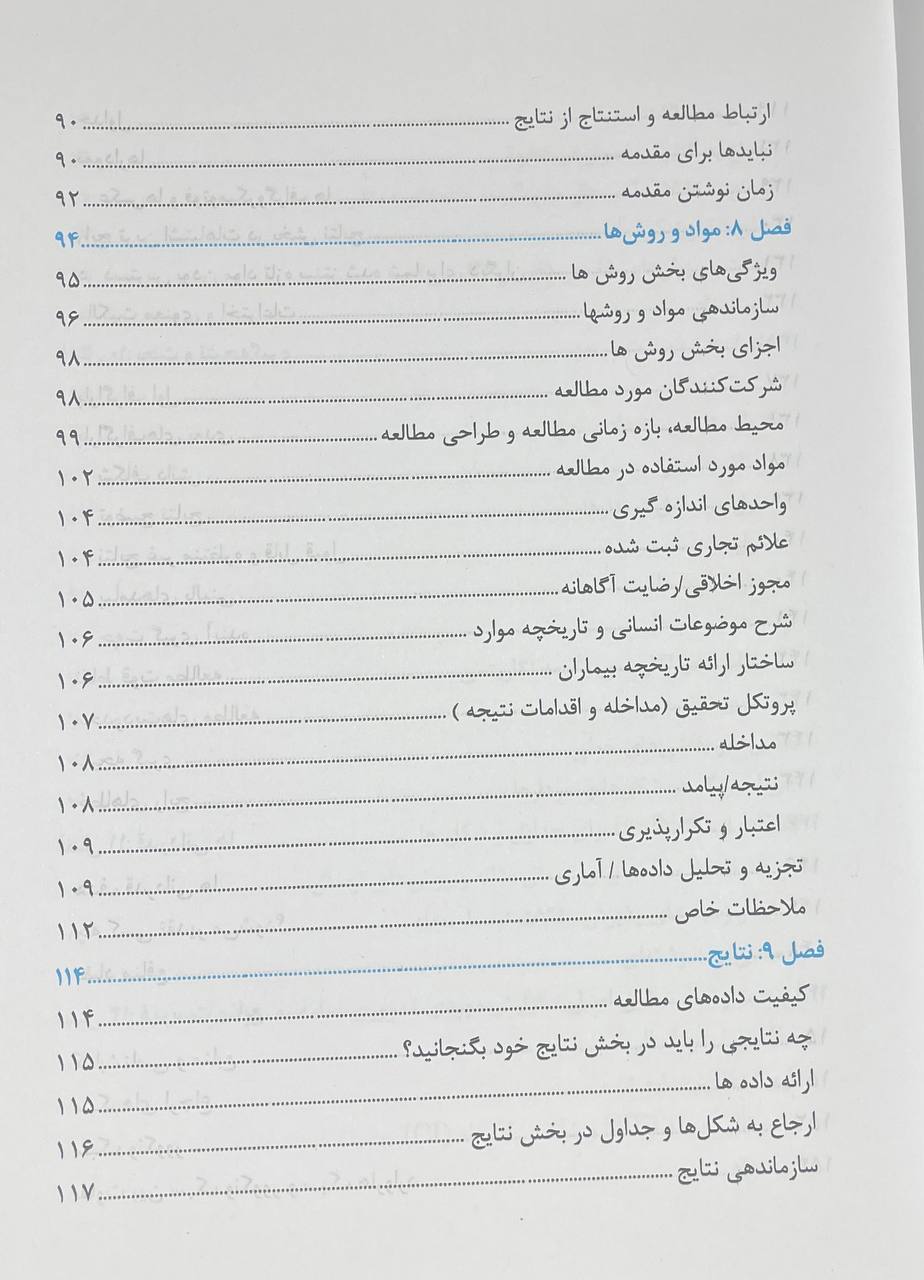 ارتباط مطالعه و استنتاج از نتایج ۹۰
نبایدها برای مقدمه ۹۰
زمان نوشتن مقدمه ۹۲
فصل ۸: مواد و روش‌ها ۹۴
ویژگی‌های بخش روش ها ۹۵
سازماندهی مواد و روشها ۹۶
اجزای بخش روش ها ۹۸
شرکت‌کنندگان مورد مطالعه ۹۸
محیط مطالعه، بازه زمانی مطالعه و طراحی مطالعه ۹۹
مواد مورد استفاده در مطالعه ۱۰۲
واحدهای اندازه گیری ۱۰۴
علائم تجاری ثبت شده ۱۰۴
مجوز اخلاقی/رضایت آگاهانه ۱۰۵
شرح موضوعات انسانی و تاریخچه موارد ۱۰۶
ساختار ارائه تاریخچه بیماران ۱۰۶
پروتکل تحقیق (مداخله و اقدامات نتیجه ) ۱۰۷
مداخله ۱۰۸
نتیجه/پیامد ۱۰۸
اعتبار و تکرارپذیری ۱۰۹
تجزیه و تحلیل داده‌ها / آماری ۱۰۹
ملاحظات خاص ۱۱۲
فصل ۹: نتایج ۱۱۴
کیفیت داده‌های مطالعه ۱۱۴
چه نتایجی را باید در بخش نتایج خود بگنجانید؟ ۱۱۵
ارائه داده ها ۱۱۵
ارجاع به شکل‌ها و جداول در بخش نتایج ۱۱۶
سازماندهی نتایج ۱۱۷